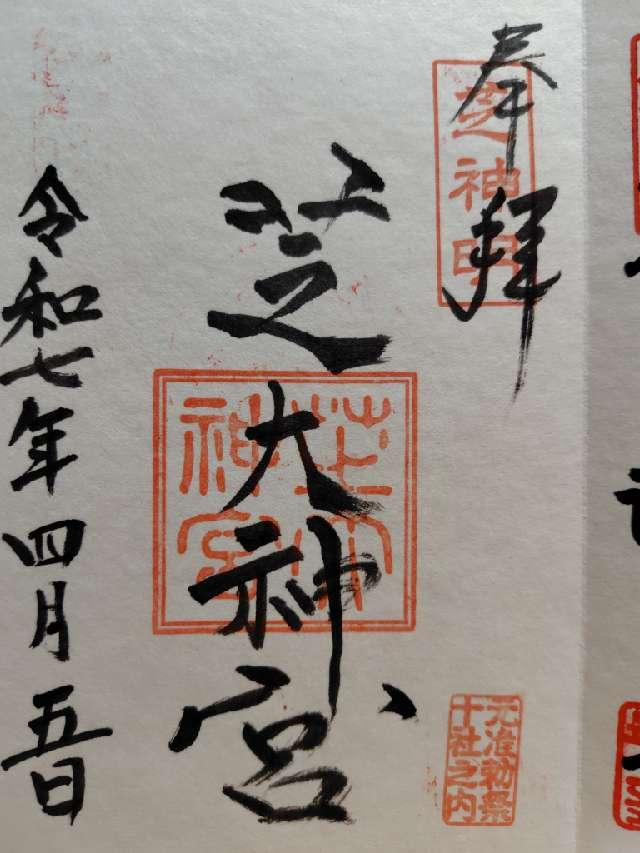 奉拝
芝神明
芝大神宮
芝大神宮
元准勅祭
十社之内
令和七年四月五日